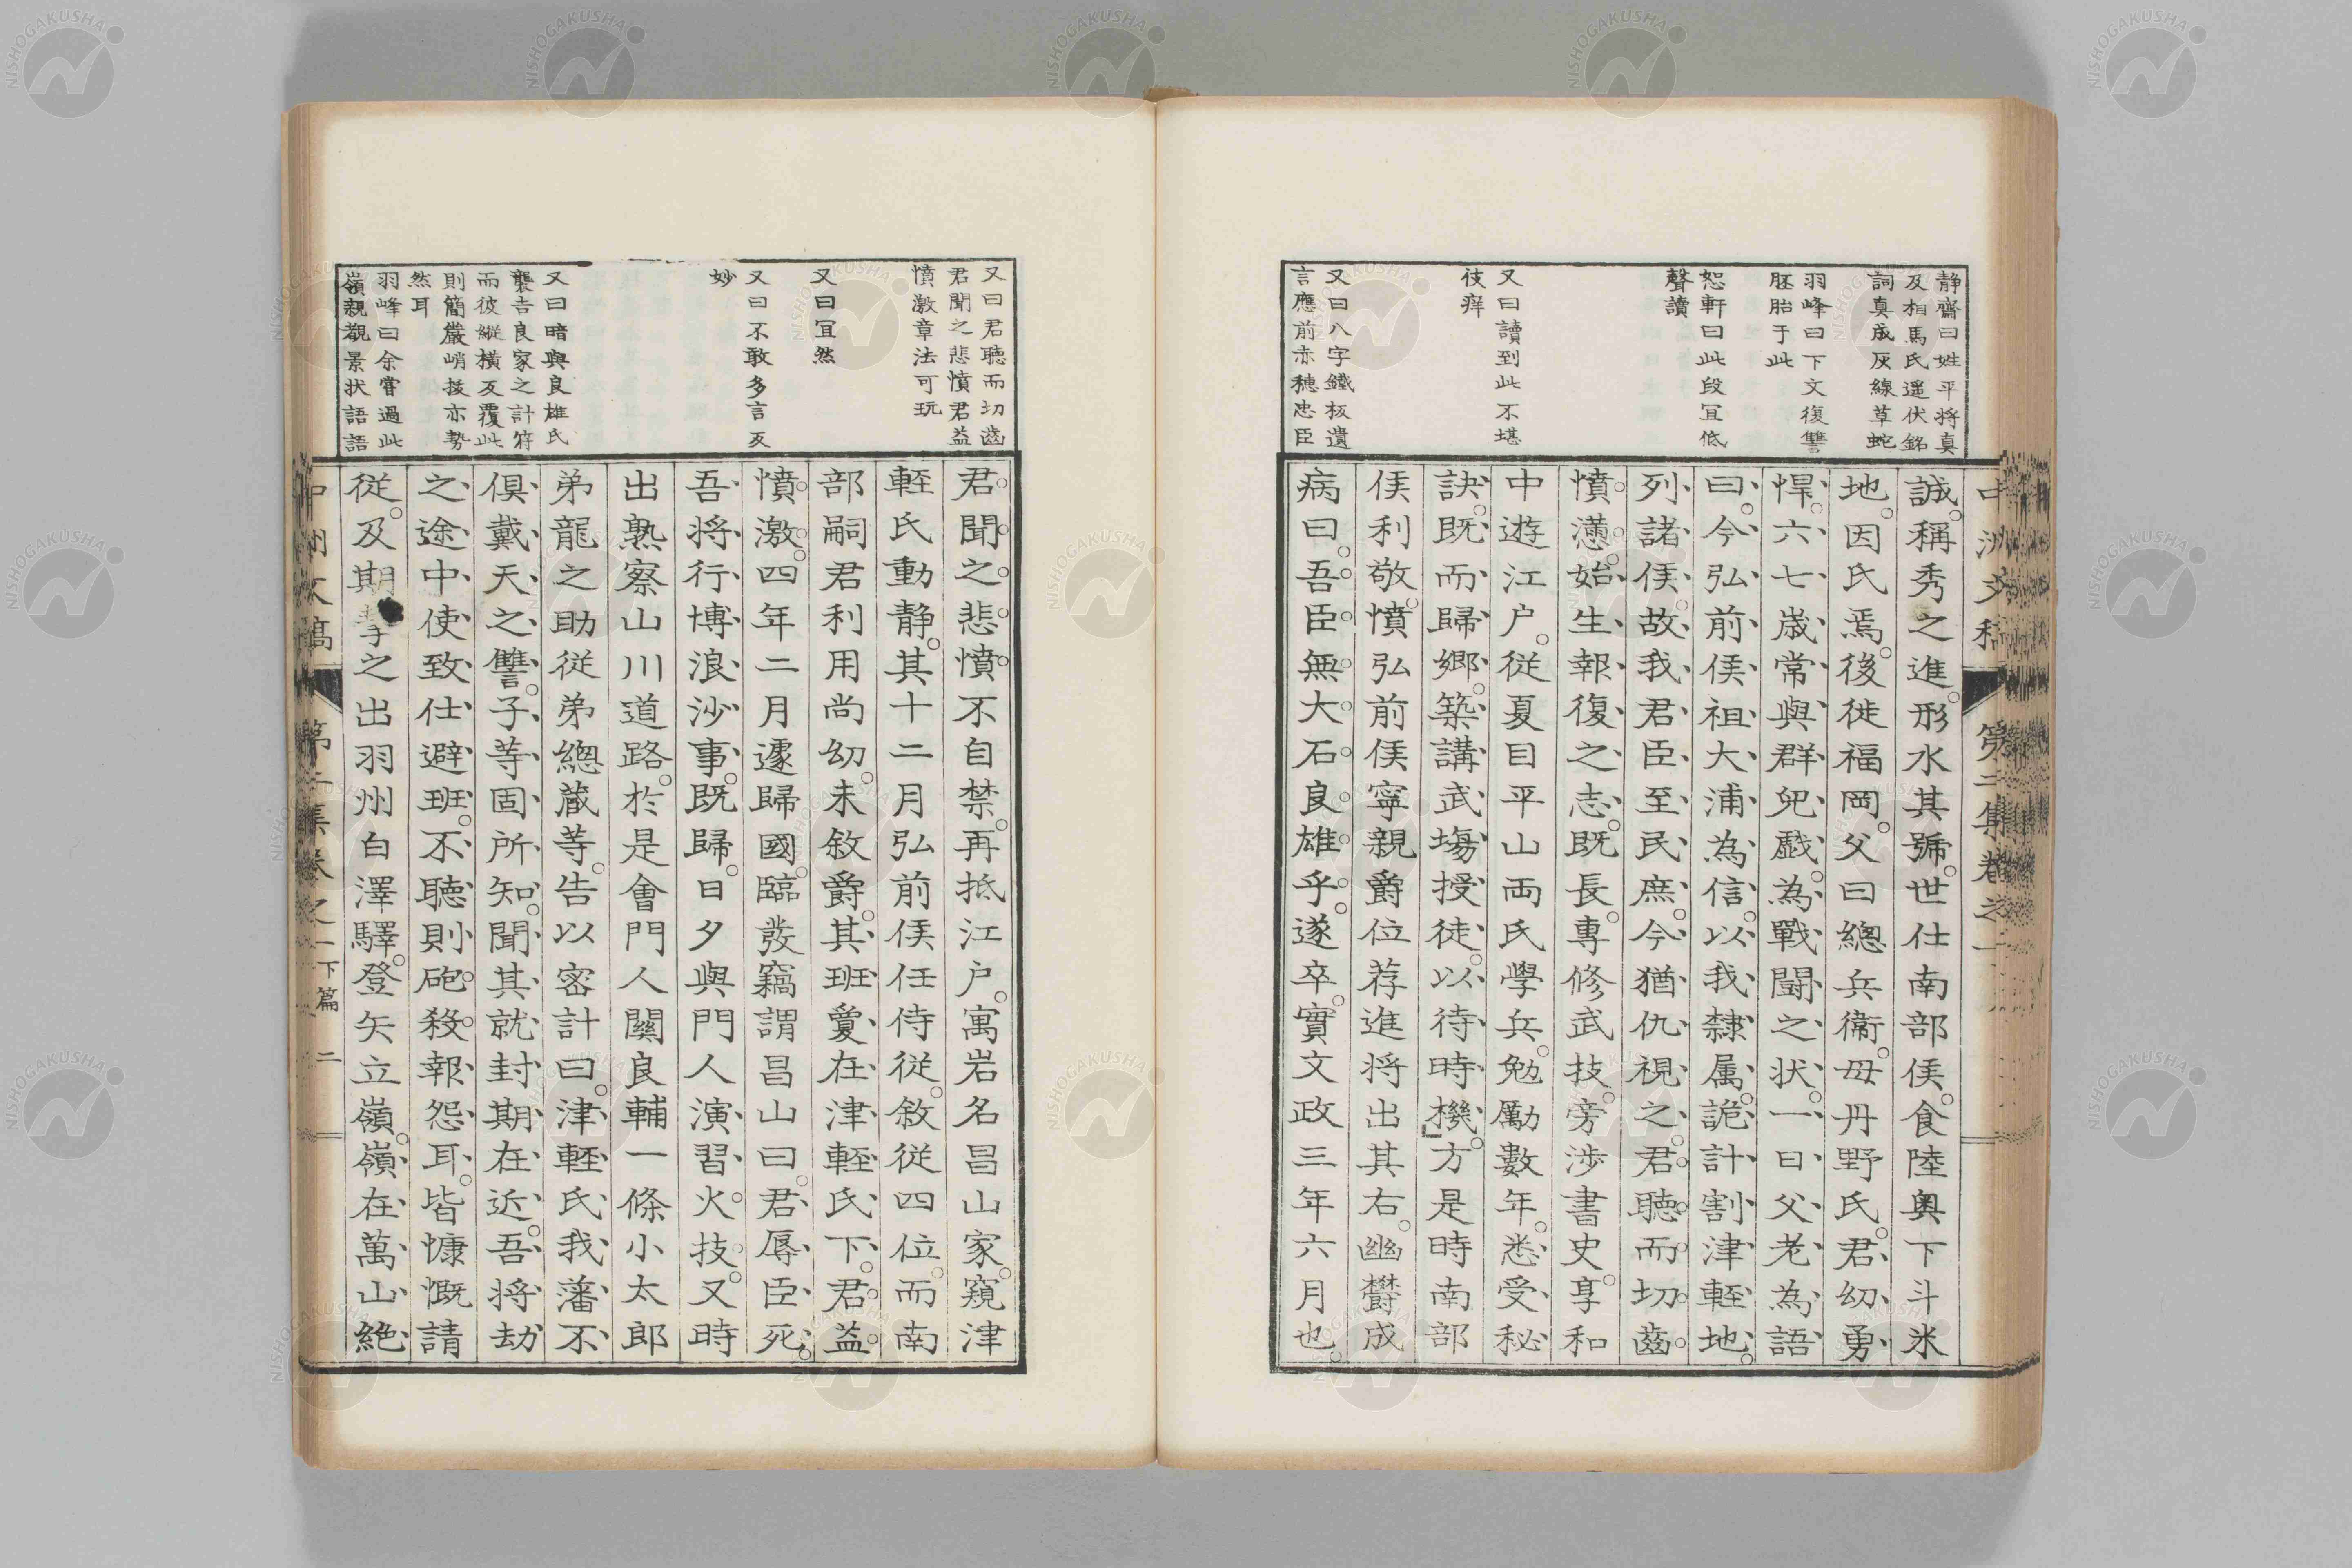 静齋曰姓平将真
及相馬氏遥伏銘
詞真成灰線草蛇
羽峰曰下文復讐
胚胎于此
恕軒曰此段冝低
聲讀
又曰讀到此不堪
伎痒
又曰八字鐵板遺
言應前赤穂忠臣
誠。稱秀之進。形水其號。世仕南部侯。食陸奥下斗米
地。因氏焉。後徙福岡。父曰總兵衛。母丹野氏。君幼勇
悍。六七歳常與群兒戲。為戰鬪之状。一日父老為語
曰。今弘前侯祖大浦為信。以我隸属。詭計割津輕地。
列諸侯。故我君臣至民庶。今猶仇視之。君聽而切齒
憤懣。始生報復之志。既長。專修武技。旁渉書史。享和
中遊江户。從夏目平山両氏學兵。勉勵數年。悉受秘
訣。既而歸郷。築講武塲授徒。以待時機。方是時南部
侯利敬。憤弘前侯寧親爵位荐進将出其右。幽欝成
病曰。吾臣無大石良雄乎。遂卒。實文政三年六月也。
中洲文稿 第二集卷之一
又曰君聴而切齒
君聞之悲憤君益
憤激章法可玩
又曰冝然
又曰不敢多言反
妙
又曰暗與良雄氏
襲吉良家之計符
而彼縱横反覆此
則簡嚴峭拔亦勢
然耳
羽峰曰余嘗過此
嶺親觀景状語語
君聞之悲憤不自禁。再抵江户。寓岩名昌山家。窺津
輕氏動静。其十二月弘前侯任侍從。敘從四位。而南
部嗣君利用尚幼。未敘爵。其班愛在津輕氏下。君益
憤激。四年二月遽歸國。臨發竊謂昌山曰。君辱臣死。
吾将行博浪沙事。既歸。日夕與門人演習火技。又時
出熟察山川道路。於是會門人關良輔一條小太郎
弟龍之助從弟總蔵等。告以密計曰。津輕氏我藩不
倶戴天之讐。子等固所知。聞其就封期在近。吾将劫
之途中使致仕避班。不聽則砲殺報怨耳。皆慷慨請
從。及期之出羽州白澤驛。登矢立嶺。嶺在萬山絶
中洲文稿 第二集卷之一 下篇 二